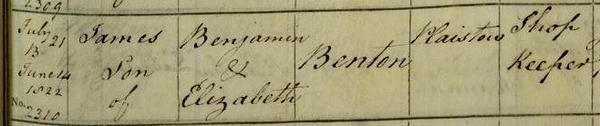 2309
July 21
B
June 14
1822
No.
2310
James
Son
of
Benjamin
&
Elizabeth
Benton
Plaistow
Shop
Keeper